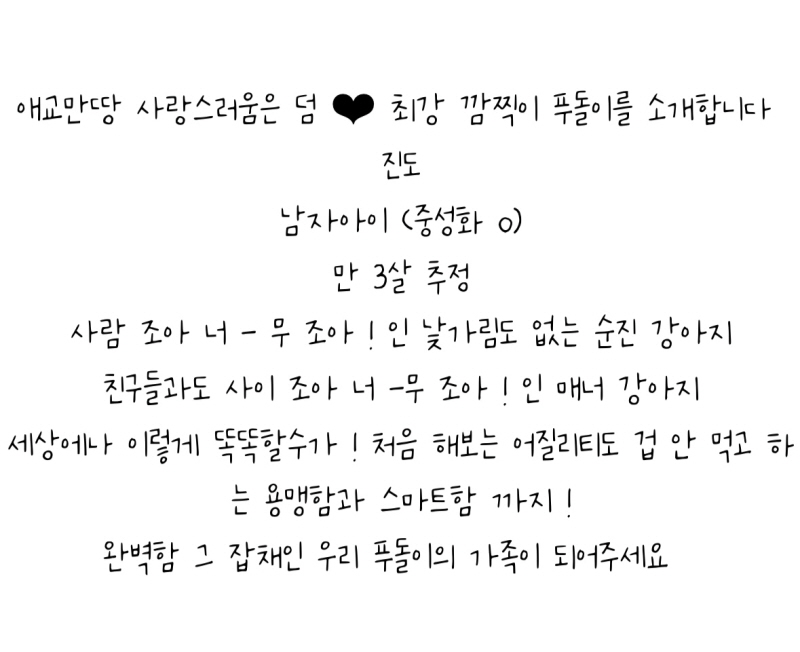 애교만땅 사랑스러움은 덤 ♥ 최강 깜찍이 푸돌이를 소개합니다
진도
남자아이 (중성화 o)
만 3살 추정
사람 조아 너 - 무 조아 ! 인 낯가림도 없는 순진 강아지
친구들과도 사이 조아 너 -무 조아 ! 인 매너 강아지
세상에나 이렇게 똑똑할수가 ! 처음 해보는 어질리티도 겁 안 먹고 하
는 용맹함과 스마트함 까지 !
완벽함 그 잡채인 우리 푸돌이의 가족이 되어주세요